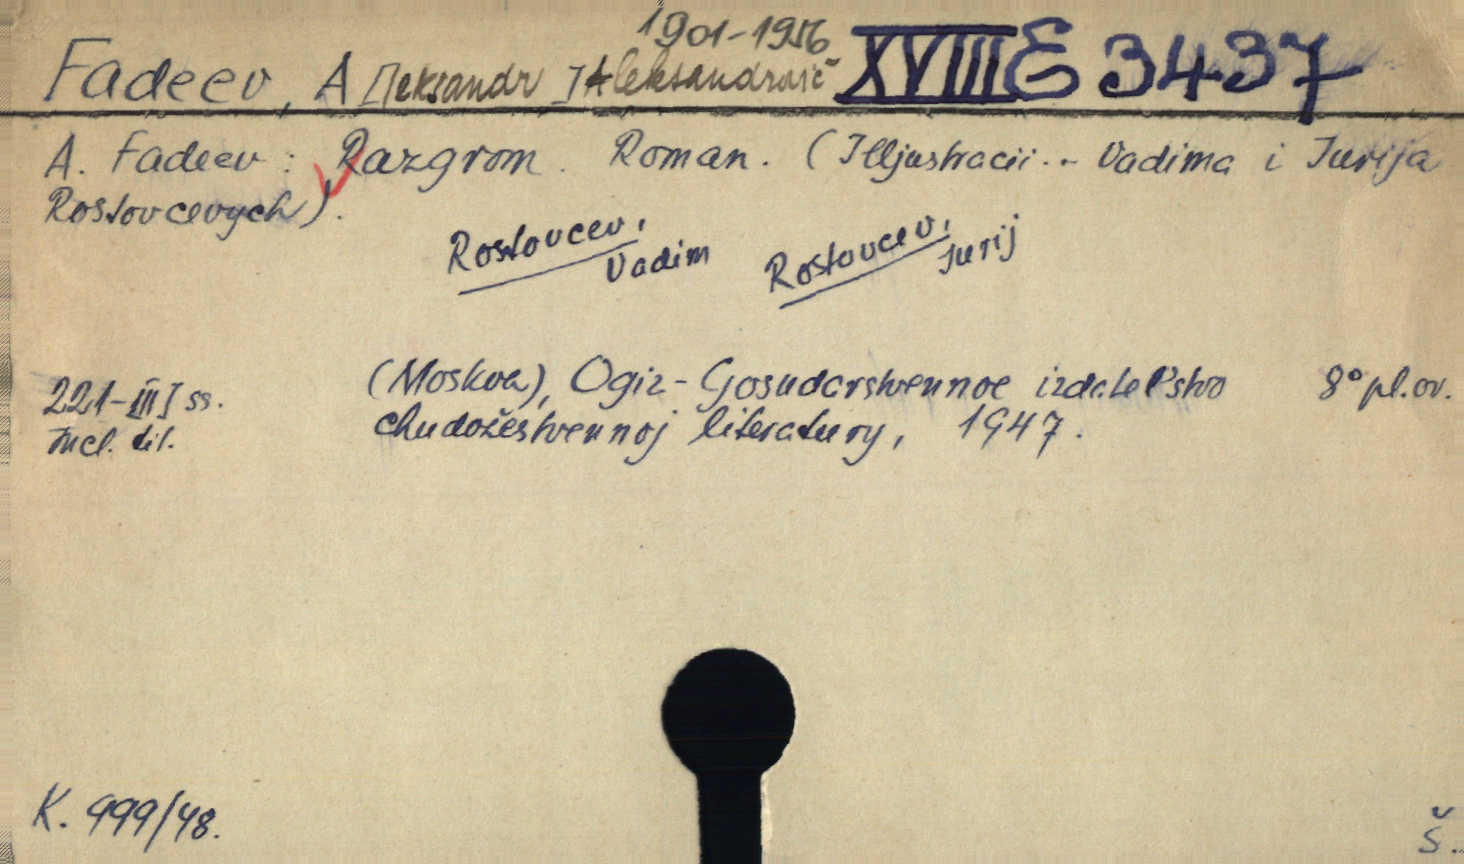 1901-1956
Fadeev, A[leksandr] Aleksandrovič XVIII E 3437
A. Fadeev: Razgrom. Roman. (Illjustracii... Vadima i Jurija
Rostovcevych).
Rostovcev, Vadim Rostovcev, Jurij
(Moskva), Ogiz-Gosudarstvennoe izdatel'stvo 8° pl.ov.
221-[III] ss.
chudožestvennoj literatury, 1947.
incl. tit.
K. 999/48.
Š.